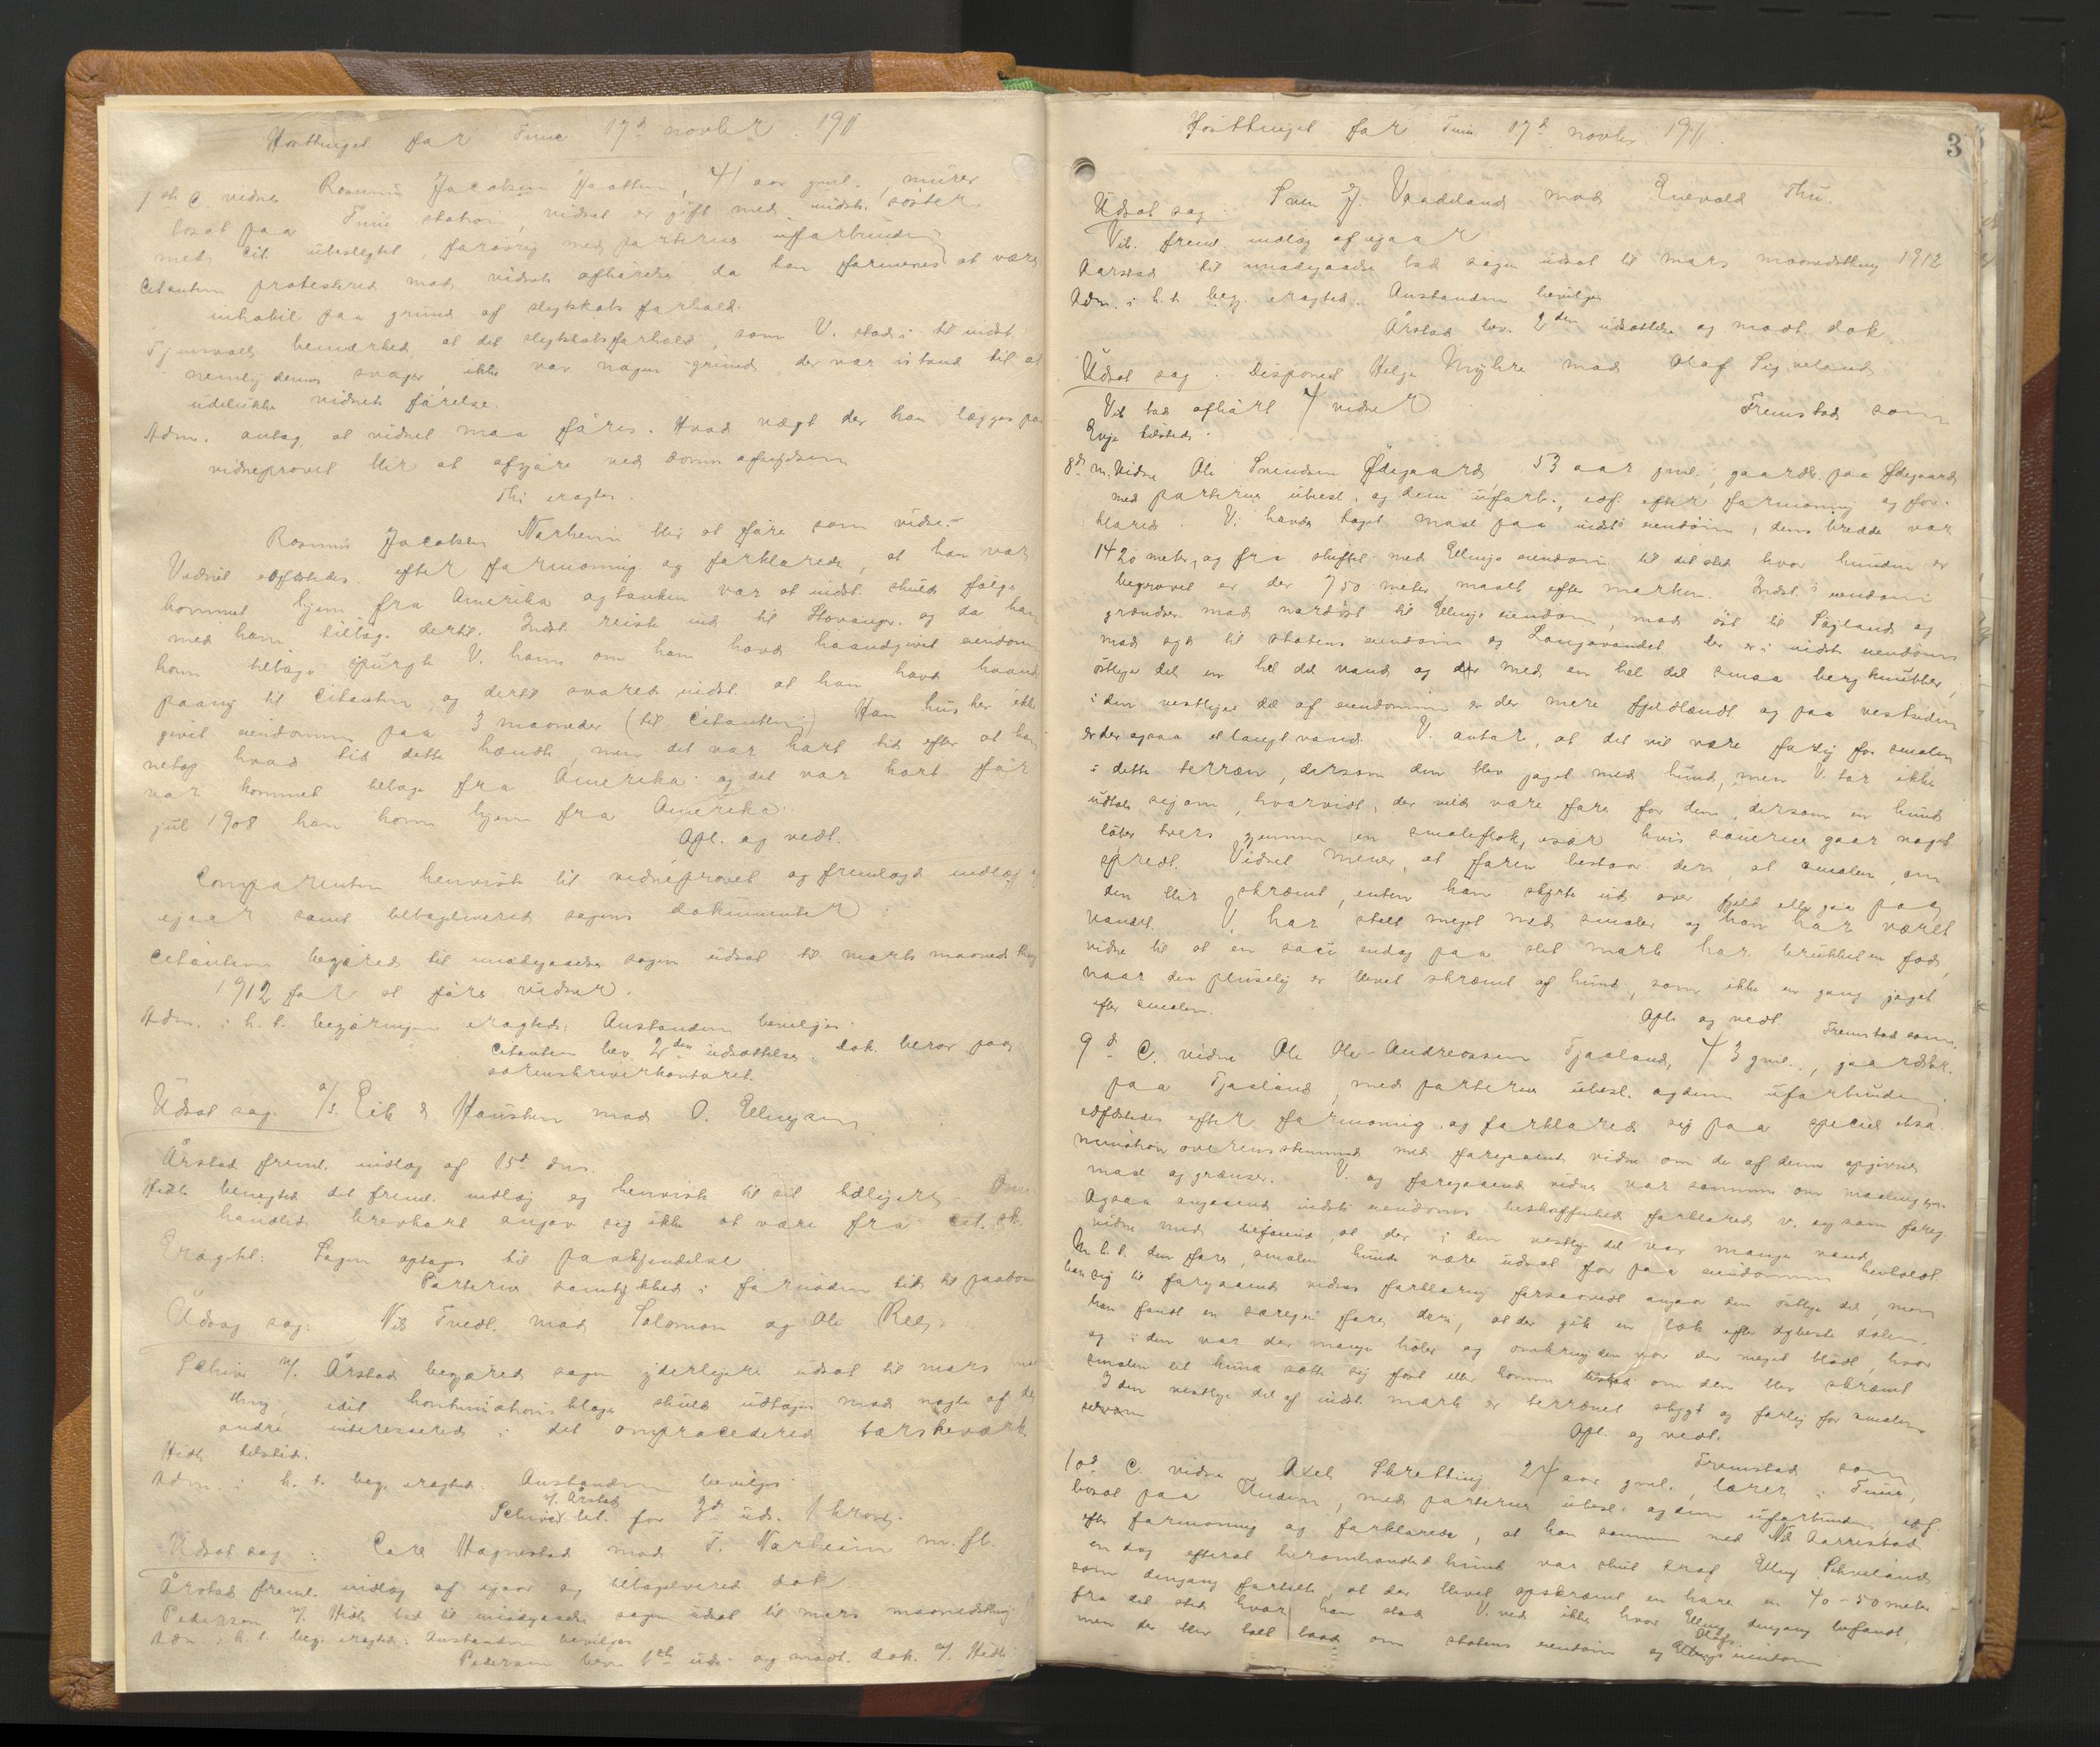 Høsttinget for Time 17d novber 1911
1ste C. vidne Rasmus Jacobsen, 41 aar gml., murer
bosat paa Time station, vidnet er gift med indst. søster
med cit. ubeslegtet, forøvrig med parterne uforbunden
Citanten protesterte mod vidnets afhørelse da han formenes at være
inhabil paa grund af slegtskabsforhold.
bemærkede, at det slegtskabsforhold, som V. stod i til indst.
nemlig dennes svoger, ikke var nogen grund, der var istand til at
udelukke vidnets førelse.
Adm. antog, at vidnet maa føres. Hvad vægt der kan lægges paa
vidneprovet blir at afgjøre ved doms afsigelsen
Thi eragtes:
Rasmus Jacobsen Nærheim blir at føre som vidne.
Vidnet edfæstedes efter formaning og forklarede, at han var
kommet hjem fra Amerika og tanken var at indst. skulde følge
med ham tilbage dertil. Indst. reiste ind til Stavanger og da han
kom tilbage spurgte V. ham om han havde haandgivet eiendommen
til Citanten og dertil svarede indst. at han havde haand
givet eiendommen paa 3 maaneder (til Citanten). Han husker ikke
netop hvad tid dette hændte, men det var kort tid efter at han
var kommet tilbage fra Amerika og det var kort før
jul 1908 han kom hjem fra Amerika.
Opl. og vedt.
Comparenten henviste til vidneprovet og fremlagde indlæg
igaar samt tilbageleverede sagens dokumenter
Citanten begjærede til imødegaaelse sagen udsat til marts maanedsting
1912 for at føre vidner.
Adm. i h.t. begjæringen eragtede: Anstanden bevilges.
Citanten bev. 2den udsættelse. Dok. beror paa
sorenskriverkontoret.
Udsat sag: A/S. Eik & Hausken mod O. Ellingsen
Årstad freml. indlæg af 15d dns.
Hidle benegtet det freml. indlæg og henviste til sit tidligere
brevkort angav sig ikke at være fra cit.
Eragtet: Sagen optages til paakjendelse
Parterne samtykkede i fornøden tid til paadømme
Udsat sag: Nils Tvedt mod Salomon og Ole Ree.
Schiøz v/ Årstad begjærede sagen yderligere udsat til mars maaneds
ting, idet kontinuationsklage skulde udtages mod nogle af de
andre interesserede i det omprocederede tærskeværk
Hidle tilstede.
Adm. i h.t. beg. eragtede: Anstanden bevilges
v/ Årstad
Schiøz bet. for 3d uds. 1 krone.
Udsat sag: Carl Hognestad mod T. Nærheim m. fl.
Årstad freml. indlæg af igaar og tilbageleverede dok.
Pedersen v/ Hidle bad til imødegaaelse sagen udsat til mars maanedsting
Adm. i h.t. beg. eragtede: Anstanden bevilges
Pedersen bev. 1ste uds. og modt. dok. v/ Hidle
Høsttinget for Time 17d novber 1911.
3
Udsat sag: Sven J. Vaadeland mod Enevald Thu.
Vik freml. indlæg af igaar
Aarstad til imødegaaelse bad sagen udsat til mars maanedsting 1912
Adm. i h.t. beg. eragted: Anstanden bevilges
Årstad bev. 2den udsættelse og modt. dok.
Udsat sag: Disponent Helge Myhre mod Olaf Sigveland
Vik bad afhørt 4 vidner
Evje tilstede.
Fremstod som
8de m. Vidne Ole Svendsen Ødegaard, 53 aar gml., gaardbr. paa Ødegaard
med parterne ubesl. og dem uforb., edf. efter formaning og for-
klarede: Vi havde taget maal paa indst.s eiendom, dens bredde var
1420 meter, og fra skiftet med Ellings eiendom til det sted hvor hunden er
begravet er der 750 meter maalt efter marken. Indst.s eiendom
grændser mod nordøst til Ellings eiendom, mod øst til Søyland og
mod syd til statens eiendom og Langavandet. Der er i indst. eiendoms
østlige del en hel del vand og der med en hel del smaa bergknubber,
i den vestlige del af eiendommen er der mere fjeldlændt og paa vestsiden
er der ogsaa et langt vand. V. antar, at det vil være farlig for smalen
i dette terræn, dersom den blev jaget med hund, men V. tør ikke
udtale sig om, hvorvidt der vilde være fare for den, dersom en hund
løber tvers gjennem en smaleflok, især hvis sauerne gaar noget
spredt. Vidnet mener, at faren bestaar deri, at smalen, om
den blir skræmt, enten kan styrte ud over fjeld eller gaa paa
vandet. V. har stelt meget med smaler og han har været
vidne til at en sau endog paa slet mark har brukket en fod,
naar den pluselig er blevet skræmt af hund, som ikke en gang jaget
efter smalen.
Opl. og vedt.
Fremstod som
9d C. vidne Ole Ole-Andreassen Tjaaland, 43 gml., gaardbr.
paa Tjaaland, med parterne ubesl. og dem uforbunden,
edfæstedes efter formaning og forklarede sig paa speciel eksa-
mination overensstemmende med foregaaende vidne om de af denne opgivne
maal og grænser. V. og foregaaende vidne var sammen om maalingen.
Ogsaa angaaende indst. eiendoms beskaffenhed forklarede v. sig som foreg.
vidne med tilføiende, at der i den vestlige del var mange vand,
M.h.t. den fare, smalen kunde være udsat for paa eiendommen henholdt
han sig til foregaaende vidnes forklaring forsaavidt angaar den østlige del, men
han fandt en særegen fare deri, at der gik en bæk efter dybeste dalen
og i den var der mange høler og omkring den var der meget blødt, hvor
smalen let kunde sætte sig fast eller komme tilskade om den blev skræmt
I den vestlige del af indst. mark er terrænet stygt og farlig for smalen
Opl. og vedt.
Fremstod som
10d C. vidne Axel Skretting 24 aar gml., lærer i Time,
bosat paa Undem, med parterne ubesl. og dem uforbunden, edf.
efter formaning og forklarede, at han sammen med Nils Aarrestad
en dag efterat heromhandlede hund var skut traf Elling Sikveland
som dengang fortalte, at der blevet opskræmt en hare en 40-50 meter
fra det sted hvor han stod. V. ved ikke hvor Elling dengang befandt,
men der blev talt baade om statens eiendom og Olafs eiendom